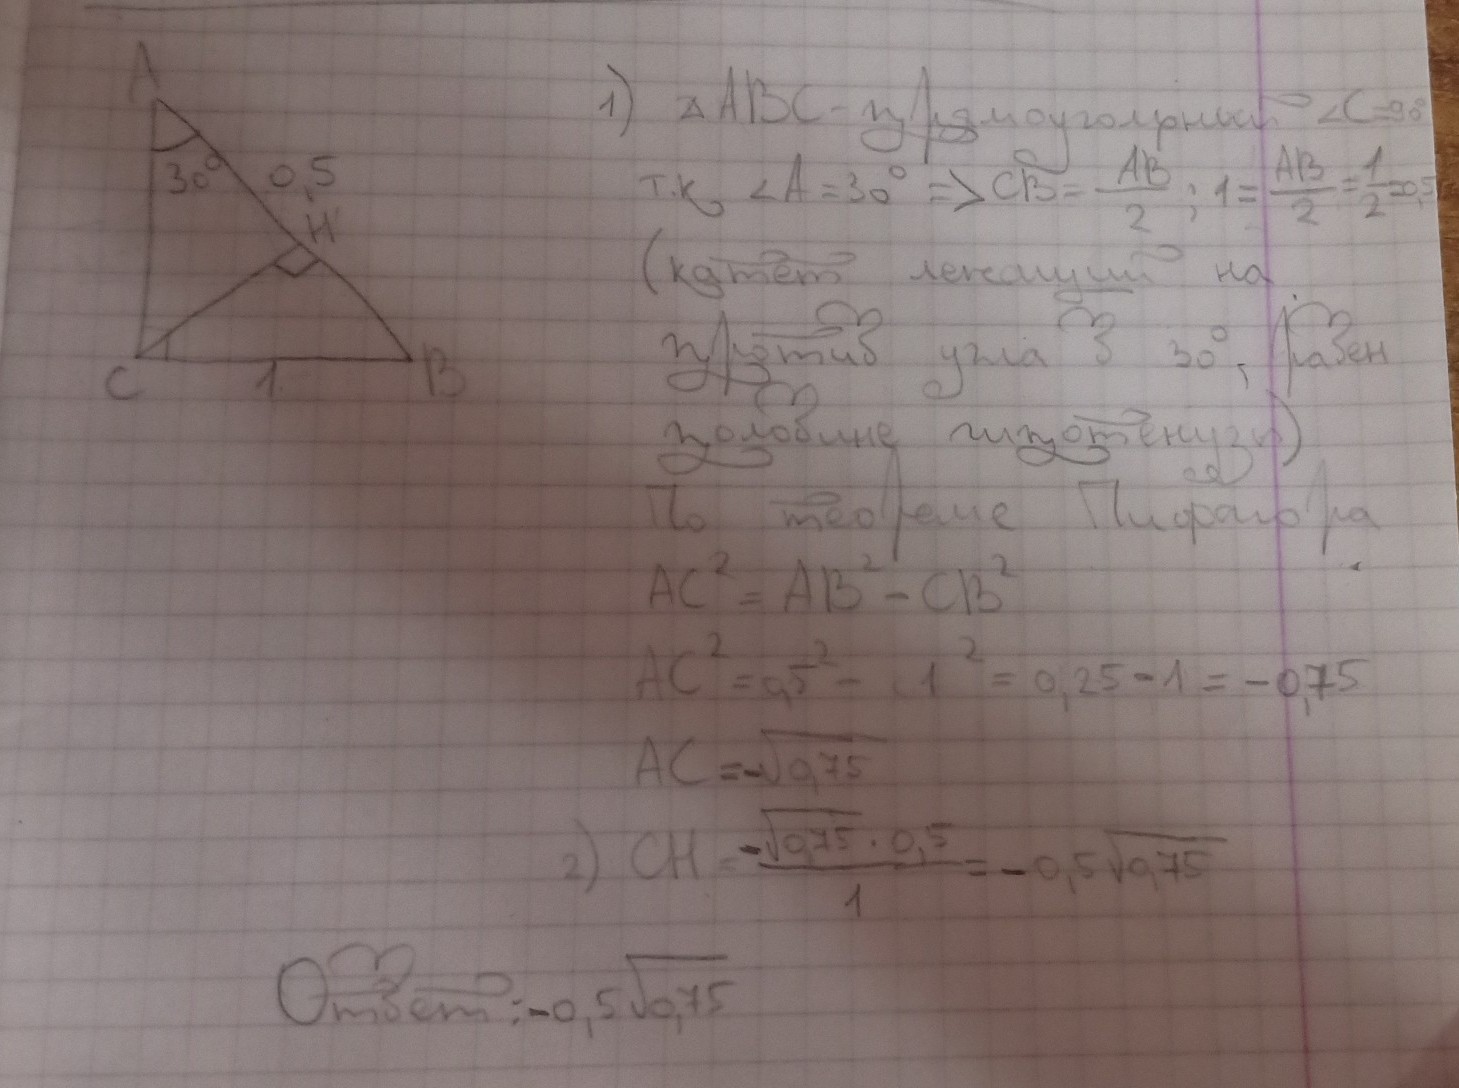 A
30°
0,5
H
C
1
B
1) △ABC - прямоугольный ∠C=90°
т.к, ∠A = 30° => CB = AB/2 ; 1 = AB/2 = 1/2 = 0,5
(катет лежащий на
против угла в 30°, равен
половине гипотенузы)
По теореме Пифагора
AC² = AB² - CB²
AC² = 0,5² - 1² = 0,25 - 1 = -0,75
AC = -√0,75
2) CH = -√0,75 · 0,5 / 1 = -0,5√0,75
Ответ: -0,5√0,75